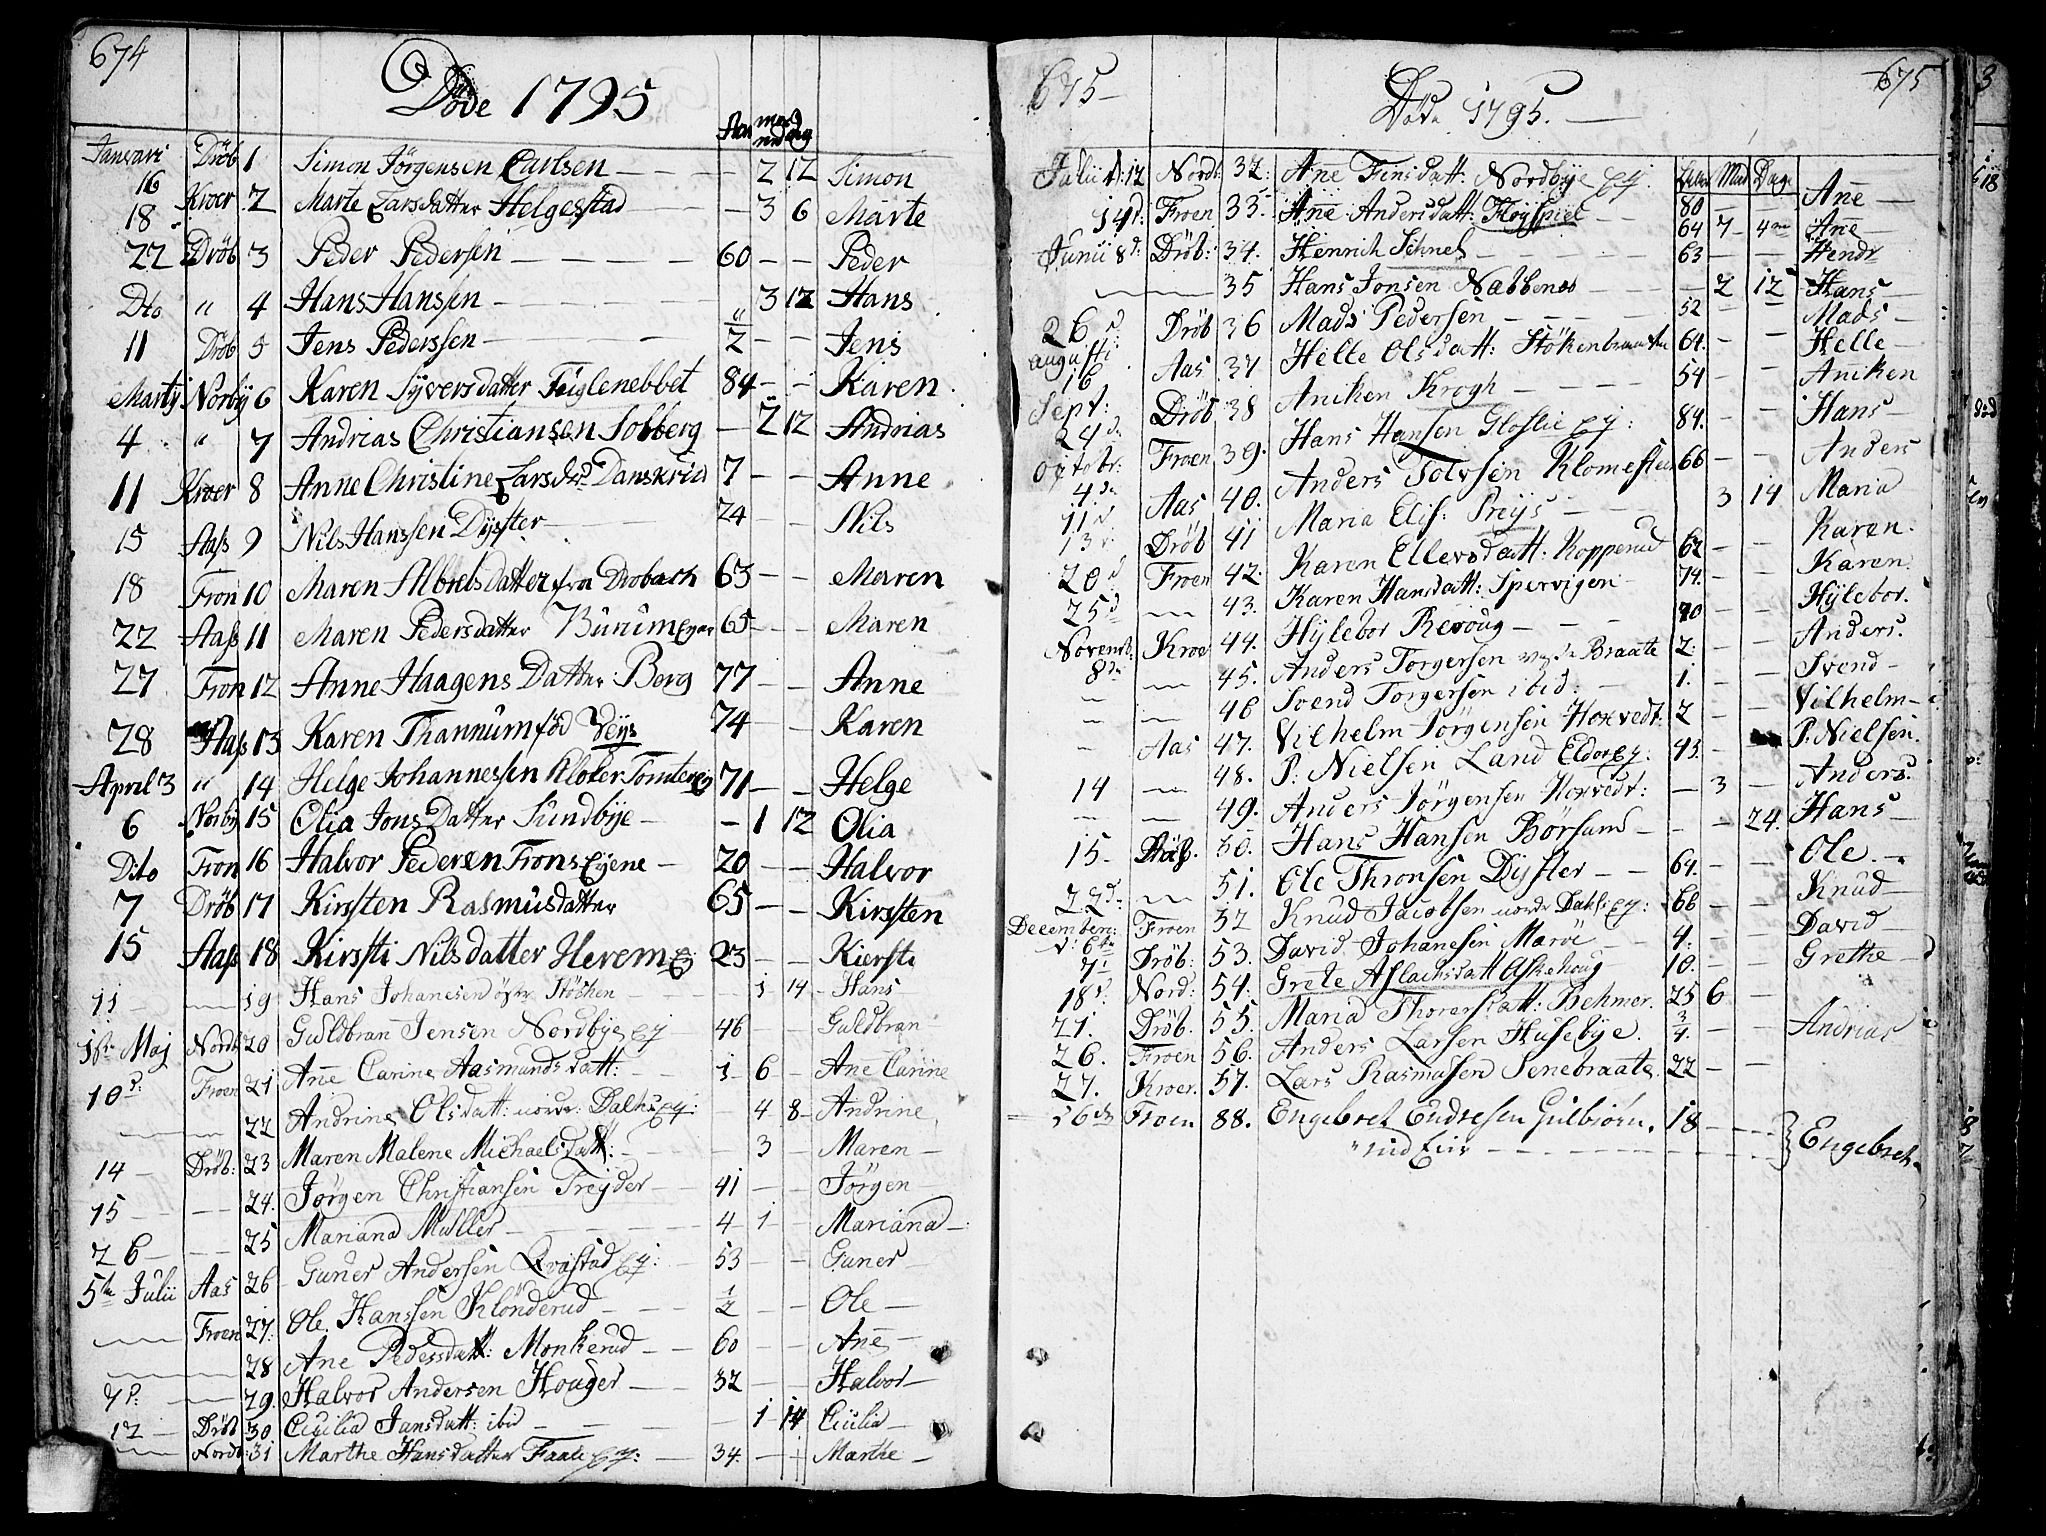 674
Döde 1795
Aar maaned dag
Januari 16 Dröb 1 Simon Jörgensen Carlsen — — — — 2 12 Simon
18 Kroer 2 Marte Larsdatter Helgestad — — 3 6 Marte
22 Dröb 3 Peder Pedersen — — — — 60 — — Peder
Dto " 4 Hans Hansen — — — — " 3 12 Hans
11 Dröb 5 Jens Pederssen — — — — 2 — — Jens
Martij Norby 6 Karen Syversdatter Fuglenebbet 84 — — Karen
4 " 7 Andrias Christiansen Solberg — 2 12 Andrias
11 Kroer 8 Anne Christine Larsd: Danskrud 7 — — Anne
15 Aass 9 Nils Hanssen Dyster — — 24 — — Nils
18 Fron 10 Maren Albretsdatter fra Drobach 63 — — Maren
22 Aass 11 Maren Pedersdatter Burum Eyer 65 — — Maren
27 Fron 12 Anne Haagens Datter Berg 77 — — Anne
28 Aass 13 Karen Thannum föd Veys 74 — — Karen
April 3 " 14 Helge Johannessen Kloker Tomten Ey 71 — — Helge
6 Norby 15 Olia Jons Datter Sundbye — — 1 12 Olia
Dito Fron 16 Halvor Pedersen Frons Eyene — 20 — — Halvor
7 Dröb 17 Kirssten Rasmusdatter 65 — — Kirssten
15 Aass 18 Kirssti Nilsdatter Herem Ey 23 — — Kierste
11 — — 19 Hans Johanesen öfre Stökken — — — 1 14 — Hans
1ste Maj Nordb 20 Guldbran Jensen Nordbye Ey — 46 — — Guldbran
10d: Froen 21 Ane Carine Aasmundsdatt: — — 1 6 — Ane Carine
— — 22 Andrine Olsdatt: nordr: Dahls Ey: — 4 8 — Andrine
14 — Dröb: 23 Maren Malene Michaelsdatt: — — — 3 — Maren —
15 — — — 24. Jörgen Christiansen Treyder — 41 — — Jörgen —
26 — — — 25 Mariana Müller — — — — 4 1 — Mariana —
5te Julii Aas 26 Guner Andersen Qvastad Ey: — 53 — — Guner —
— Froen 27: Ole Hanssen Klönderud — — — ½ — — Ole —
— — 28 Ane Pedersdatt: Monkerud — — 60 — — Ane —
7d: — 29. Halvor Andersen Houger — — 32 — — Halvor —
12 — Dröb 30 Cicilia Jansdatt: ibid — — — 1 14 Cicilia —
— Nordb: 31 Marthe Hansdatter Faale Ey: — 34. — — Marthe —
675 —
675
Döde 1795. —
Mnd Dage
Julii d: 12 Nordb 32: Ane Finsdatt: Nordbye Ey: 80 — Ane —
14d: Froen 33. Ane Andersdatt: Flöyspiel — — 64 7 — 4 Ane —
Junii 8d: Dröb: 34. Henrich Schnel — — — 63 — — Hendr
— — 35 Hans Jonsen Næbbenes — — — 2 12 Hans —
26d: Dröb 36 Mads Pedersen — — — — 52 — — Mads —
augusti 16 Aas 37 Helle Olsdatt: Stökenbraaten 64. — — Helle —
Sept: Dröb 38 Aniken Krogh — — — — 54 — — Aniken
24d: Froen 39. Hans Hansen Gloslie Ey: 84. — — Hans —
Octobr: 4de Aas 40. Anders Tolvsen Klomesteen 66 — — Anders
11d: Dröb 41 Maria Elis: Preys — — — 3 14 Maria
13d: Froen 42: Karen Ellersdatt: Kopperud 62 — — Karen.
20d — 43. Karen Hansdatt: Spervigen — 74. — — Karen.
25d Kroe 44. Hylebor Revoug — — — 70 — — Hylebor.
Novembr: 8de — 45. Anders Torgersen Braate 2: — — Anders.
— — 46 Svend Torgersen ibid: — 1. — — Svend —
— Aas 47. Vilhelm Jörgensen Hoxvedt: 2 — — Vilhelm —
14 — 48. P: Nielsen Land Eldor Ey: 43. — P: Nielsen.
— — 49. Anders Jörgensen Hoxvedt: — 3 — Anders:
15 — Dröb. 50. Hans Hansen Börsund — — — 24. Hans —
22d: — 51. Ole Thronsen Dyster — — 64. — — Ole. —
December: Froen 52 Knud Jacobsen nordr Dahls Ey: 66 — — Knud —
d: 6te Dröb: 53. David Johanesen Maröe — 4: — — David —
7d Nord: 54. Grete Aslachsdatt Askehoug 10. — — Grethe —
18d: Dröb. 55. Maria Thorersdatt: Behmer. 25 6 —
21. Froen 56. Anders Larsen Husebye. ¾. — — Andrias
26. Kroer: 57. Lars Rasmusen Senebraate 22 — —
27. Froen 88. Engebret Endresen Gulbiörn. 18 — — — Engebret
26de